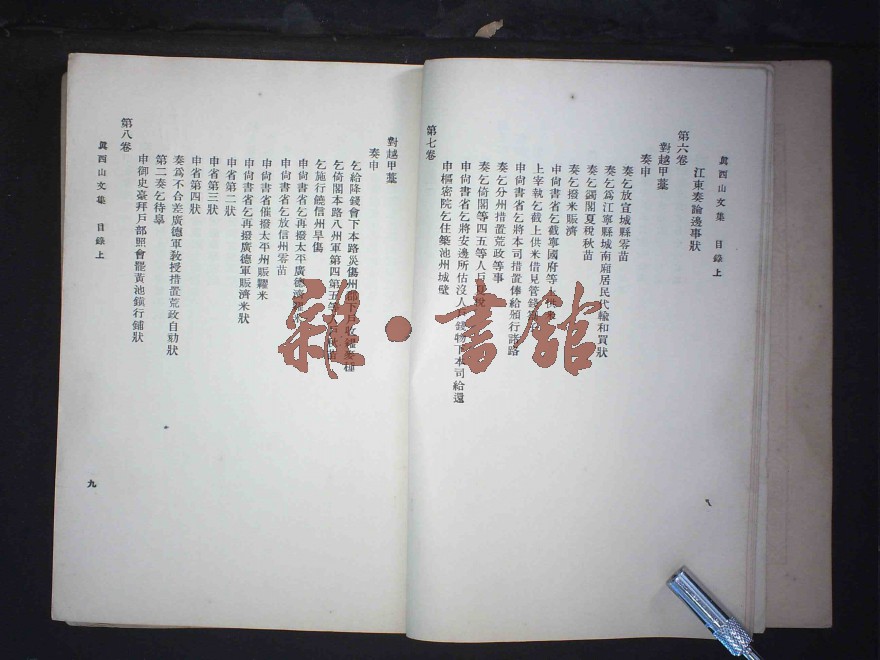 眞西山文集　目錄上
江東奏論邊事狀
第六卷
對越甲藁
奏申
奏乞放宣城縣零苗
奏乞爲江寧縣城南廂居民代輸和買狀
奏乞蠲閣夏稅秋苗
奏乞撥米賑濟
申尙書省乞截寧國府等
上宰執乞截上供米借見管錢
申尙書省乞將本司措置俸給頒行諸路
奏乞分州措置荒政等事
奏乞倚閣等四五等人戶夏稅
申尙書省乞將安邊所估沒人戶錢物下本司給還
申樞密院乞住築池州城壁
第七卷
八
對越甲藁
奏申
乞給降錢會下本路災傷州郡下戶收糴麥種
乞倚閣本路八州軍第四第五等
乞施行饒信州旱傷
申尙書省乞再撥太平廣德濟糶
申尙書省乞放信州零苗
申尙書省催撥太平州賑糶米
申尙書省乞再撥廣德軍賑濟米狀
申省第二狀
申省第三狀
申省第四狀
奏爲不合差廣德軍敎授措置荒政自劾狀
第二奏乞待辠
申御史臺幷戶部照會罷黃池鎭行鋪狀
第八卷
眞西山文集　目錄上
九
雜·書館